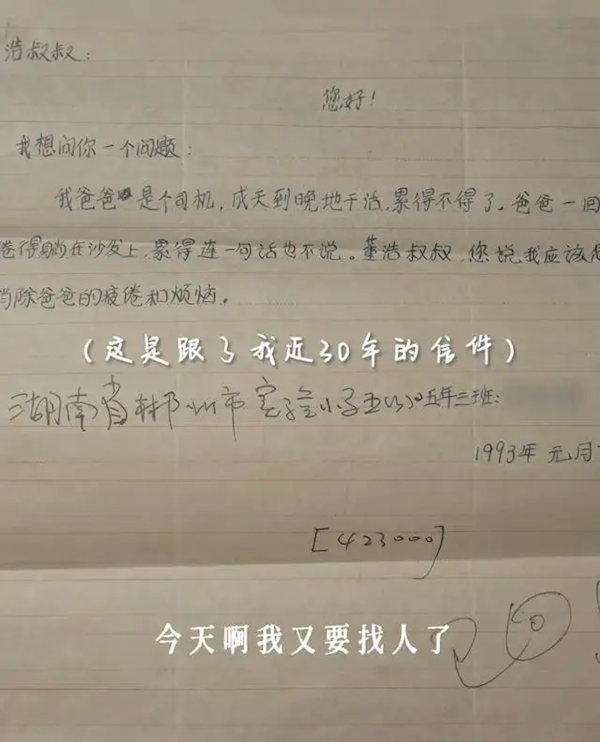 浩叔叔:
您好!
我想问你一个问题:
我爸爸是个司机,成天到晚地干活,累得不得了。爸爸一回
倦得躺在沙发上,累得连一句话也不说。董浩叔叔,您说,我应该怎
消除爸爸的疲倦和烦恼。
(这是跟了我近30年的信件)
湖南省郴州市实验小学 五年三班:
1993年元月
[423000]
今天啊我又要找人了